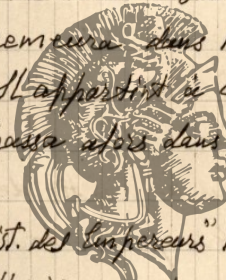 demeura dans
Il appartint à
passa alors dans
st. des Empereurs"